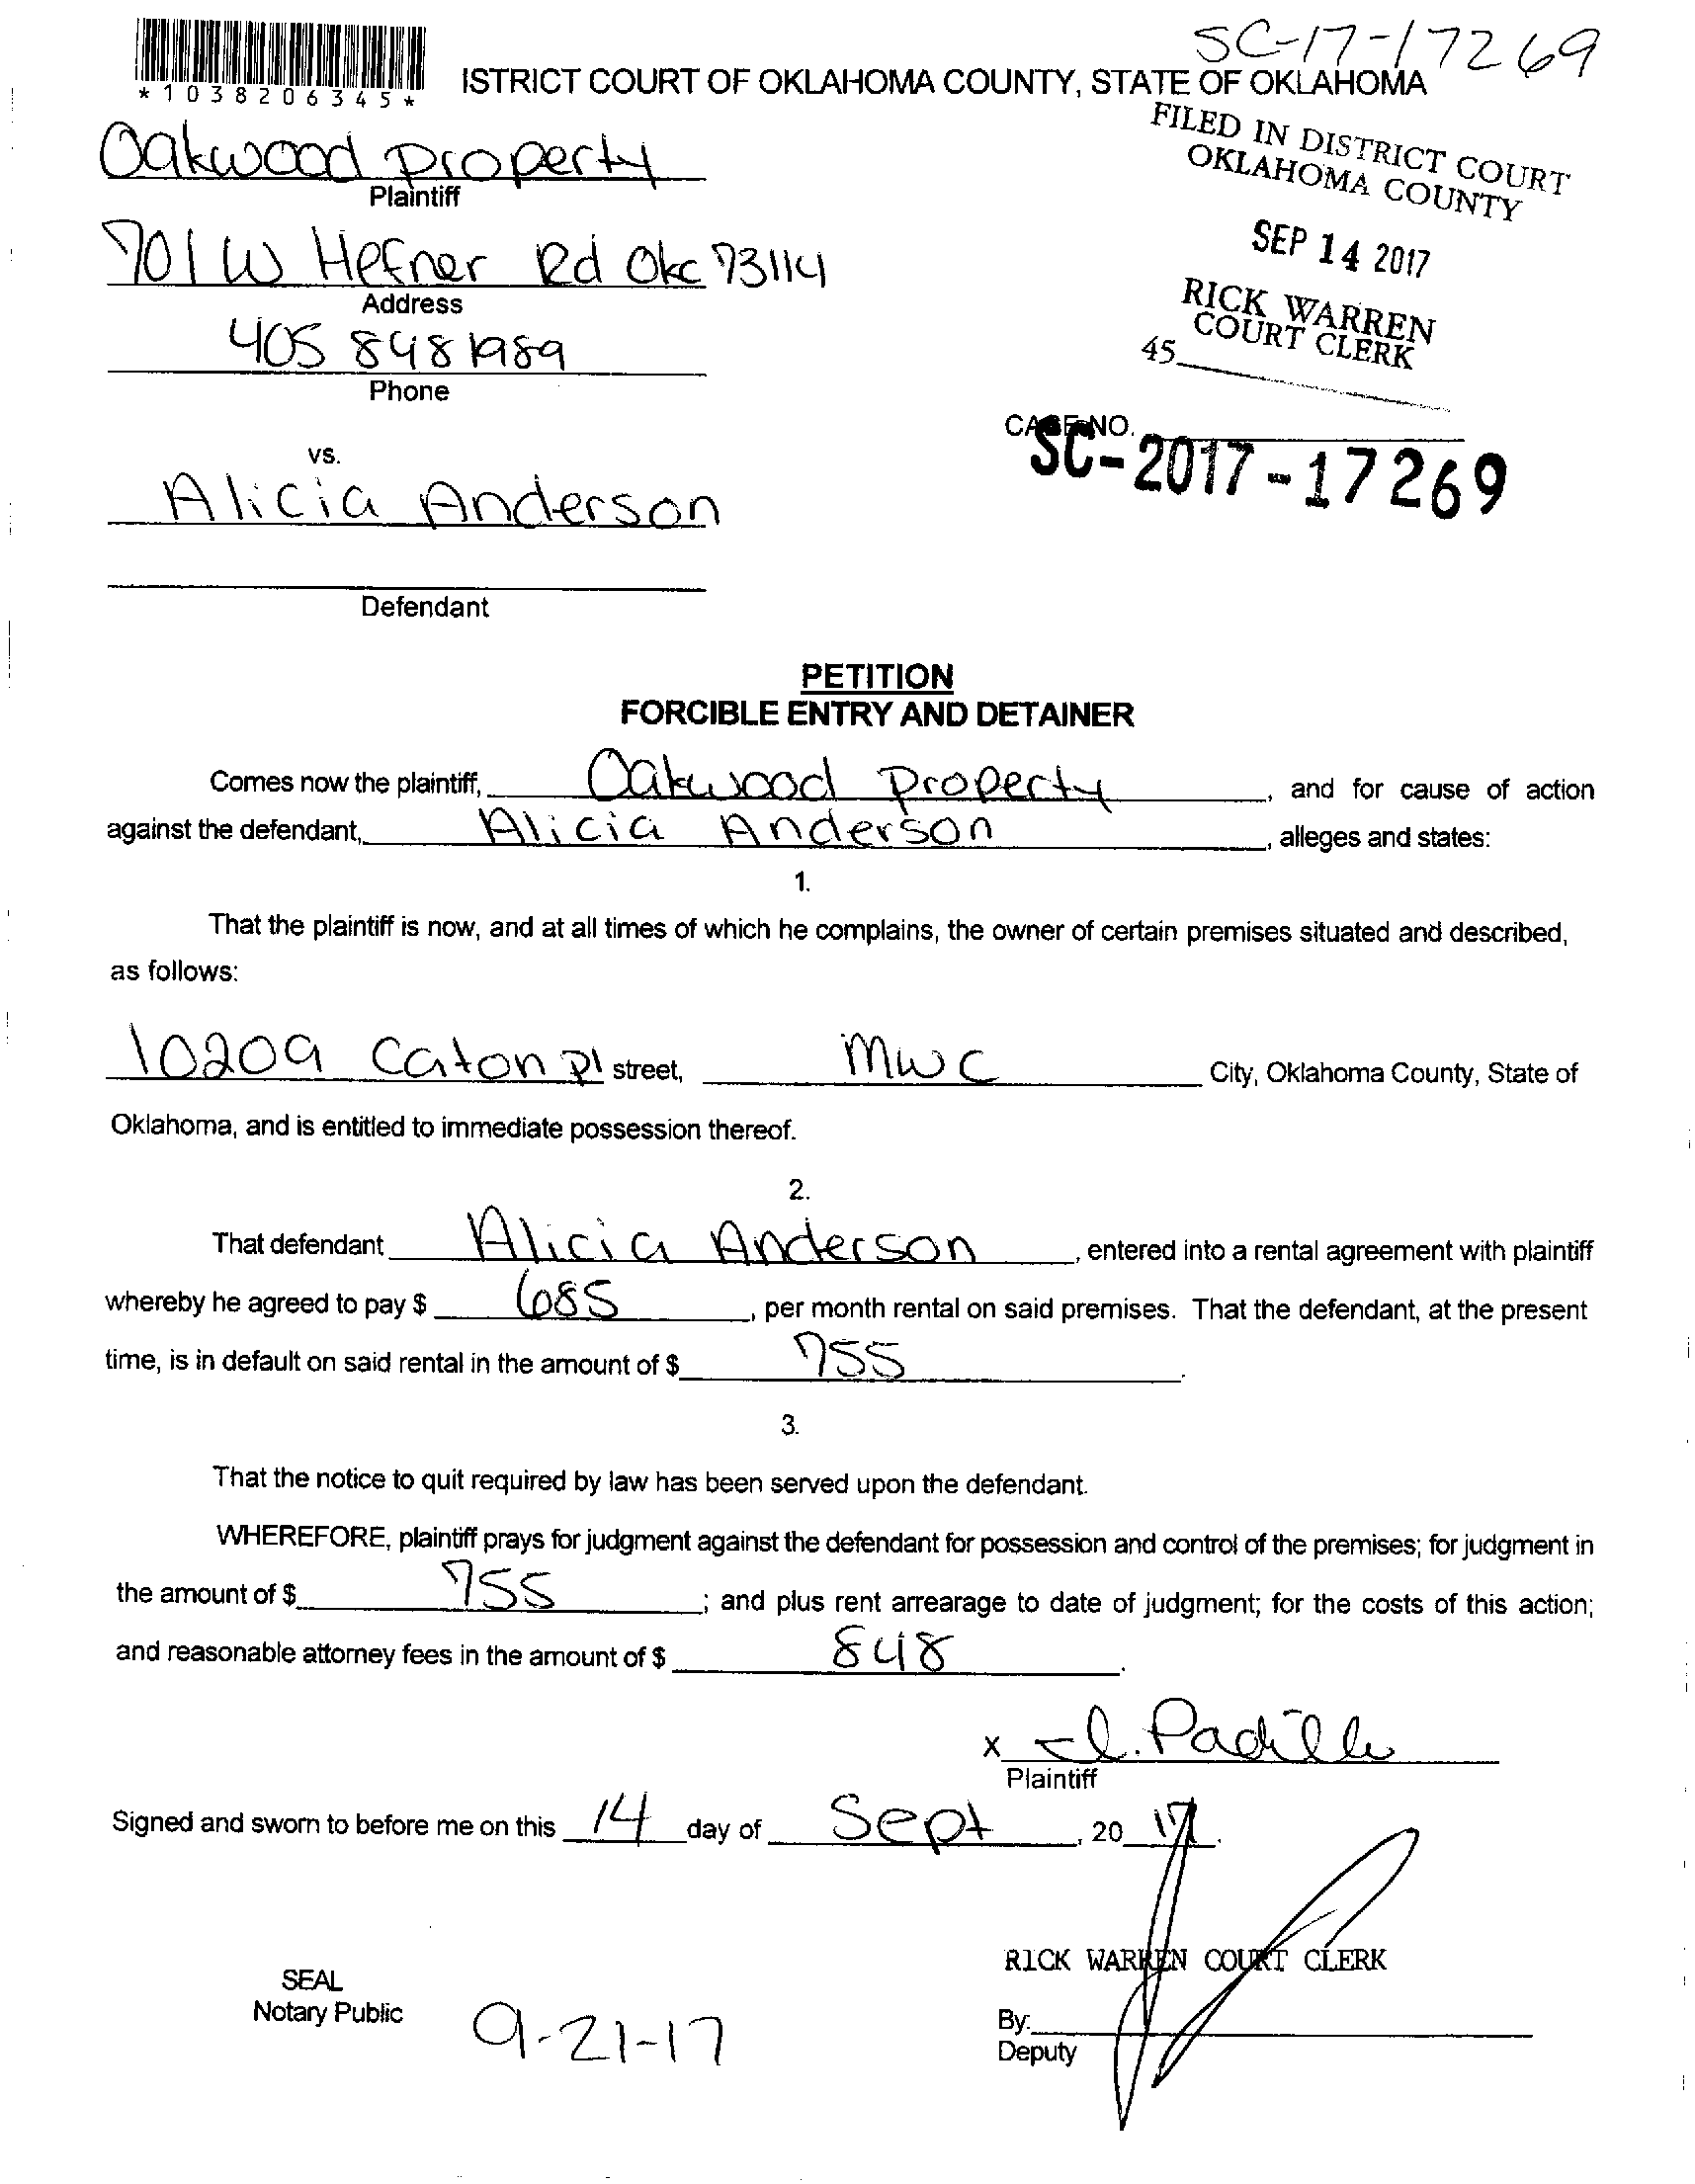 SC-17-17269
*1038206345*
ISTRICT COURT OF OKLAHOMA COUNTY, STATE OF OKLAHOMA
FILED IN DISTRICT COURT
OKLAHOMA COUNTY
SEP 14 2017
RICK WARREN
COURT CLERK
45
Oakwood Property
Plaintiff
701 W Hefner Rd Okc 73114
Address
405 848 1989
Phone
CASE NO.
SC-2017-17269
vs.
Alicia Anderson
Defendant
PETITION
FORCIBLE ENTRY AND DETAINER
Comes now the plaintiff, Oakwood Property, and for cause of action
against the defendant, Alicia Anderson, alleges and states:
1.
That the plaintiff is now, and at all times of which he complains, the owner of certain premises situated and described,
as follows:
10209 Caton Pl street, MWC City, Oklahoma County, State of
Oklahoma, and is entitled to immediate possession thereof.
2.
That defendant Alicia Anderson, entered into a rental agreement with plaintiff
whereby he agreed to pay $ 685, per month rental on said premises. That the defendant, at the present
time, is in default on said rental in the amount of $ 755.
3.
That the notice to quit required by law has been served upon the defendant.
WHEREFORE, plaintiff prays for judgment against the defendant for possession and control of the premises; for judgment in
the amount of $ 755; and plus rent arrearage to date of judgment; for the costs of this action;
and reasonable attorney fees in the amount of $ 848.
x I. Padilla
Plaintiff
Signed and sworn to before me on this 14 day of Sept, 20 17.
RICK WARREN COURT CLERK
SEAL
Notary Public
9-21-17
By:
Deputy